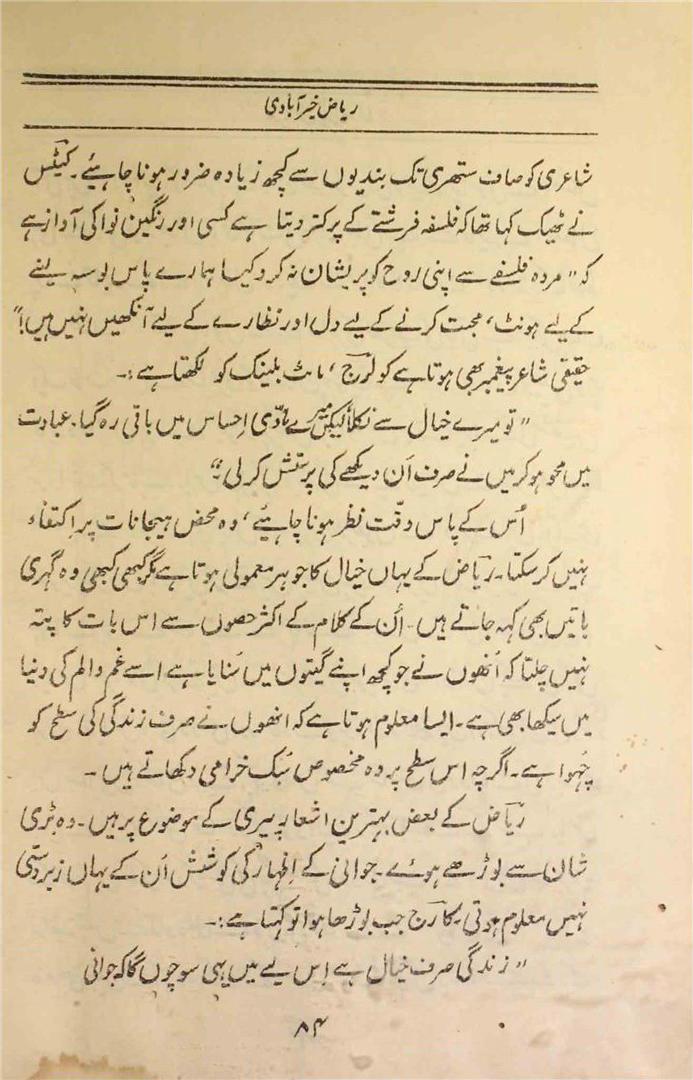 ریاض خیرآبادی
شاعری کو صاف ستھری تک بندیوں سے کچھ زیادہ ضرور ہونا چاہیئے۔ کیٹس
نے ٹھیک کہا تھا کہ فلسفہ فرشتے کے پر کتر دیتا ہے کسی اور رنگین نوا کی آواز ہے
کہ "مردہ فلسفے سے اپنی روح کو پریشان نہ کرو کیا ہمارے پاس بوسہ لینے
کے لیے ہونٹ، محبت کرنے کے لیے دل اور نظارے کے لیے آنکھیں نہیں ہیں!"
حقیقی شاعر پیغمبر بھی ہوتا ہے کولرج، ماٹ بلینک کو لکھتا ہے:۔
"تو میرے خیال سے نکلا لیکن میرے مادّی اِحساس میں باقی رہ گیا۔ عبادت
میں محو ہو کر میں نے صرف اَن دیکھے کی پرستش کر لی۔"
اُس کے پاس دقّت نظر ہونا چاہیئے، وہ محض ہیجانات پر اِکتفاء
نہیں کر سکتا۔ ریاض کے یہاں خیال کا جوہر معمولی ہوتا ہے مگر کبھی کبھی وہ گہری
باتیں بھی کہہ جاتے ہیں۔ اُن کے کلام کے اکثر حصوں سے اس بات کا پتہ
نہیں چلتا کہ اُنھوں نے جو کچھ اپنے گیتوں میں سُنایا ہے اسے غم و الم کی دنیا
میں سیکھا بھی ہے۔ ایسا معلوم ہوتا ہے کہ انھوں نے صرف زندگی کی سطح کو
چُھوا ہے۔ اگرچہ اس سطح پر وہ مخصوص سُبک خرامی دکھاتے ہیں۔
ریاض کے بعض بہترین اشعار پیری کے موضوع پر ہیں۔ وہ بڑی
شان سے بوڑھے ہوئے۔ جوانی کے اِظہار کی کوشش اُن کے یہاں زبردستی
نہیں معلوم ہوتی۔ کالرج جب بوڑھا ہوا تو کہتا ہے:۔
"زندگی صرف خیال ہے اِس لیے میں یہی سوچوں گا کہ جوانی
۸۴